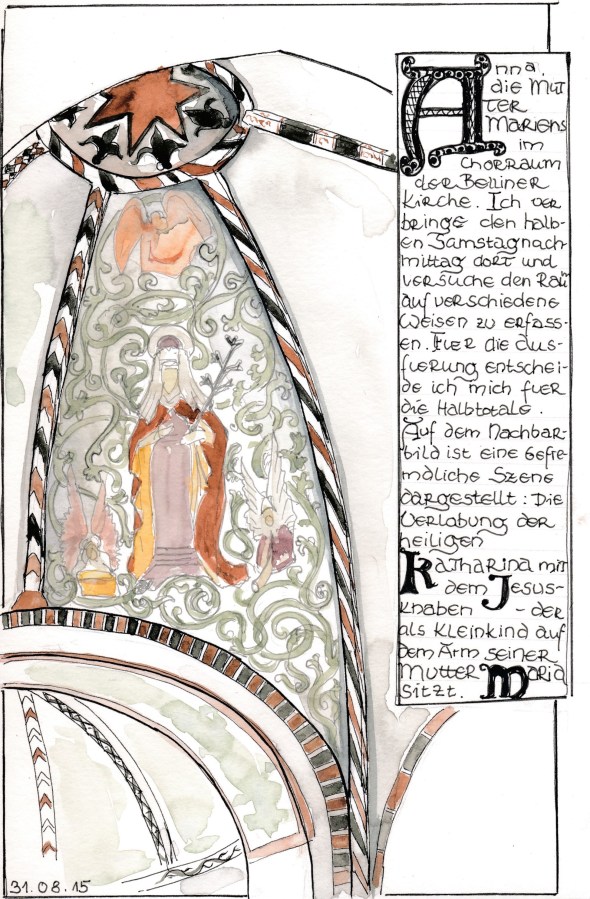 Anna.
die Mut
ter
Mariens
im
Chorraum
der Berliner
Kirche. Ich ver
bringe den halb-
en Samstagnach
mittag dort und
versuche den Raum
auf verschiedene
Weisen zu erfass-
en. Fuer die Aus-
fuerung entschei-
de ich mich fuer
die Halbtotale.
Auf dem Nachbar-
bild ist eine befre-
mdliche Szene
dargestellt: Die
Verlobung der
heiligen
Katharina mit
dem Jesus-
knaben - der
als Kleinkind auf
dem Arm seiner
Mutter Maria
sitzt.
31.08.15